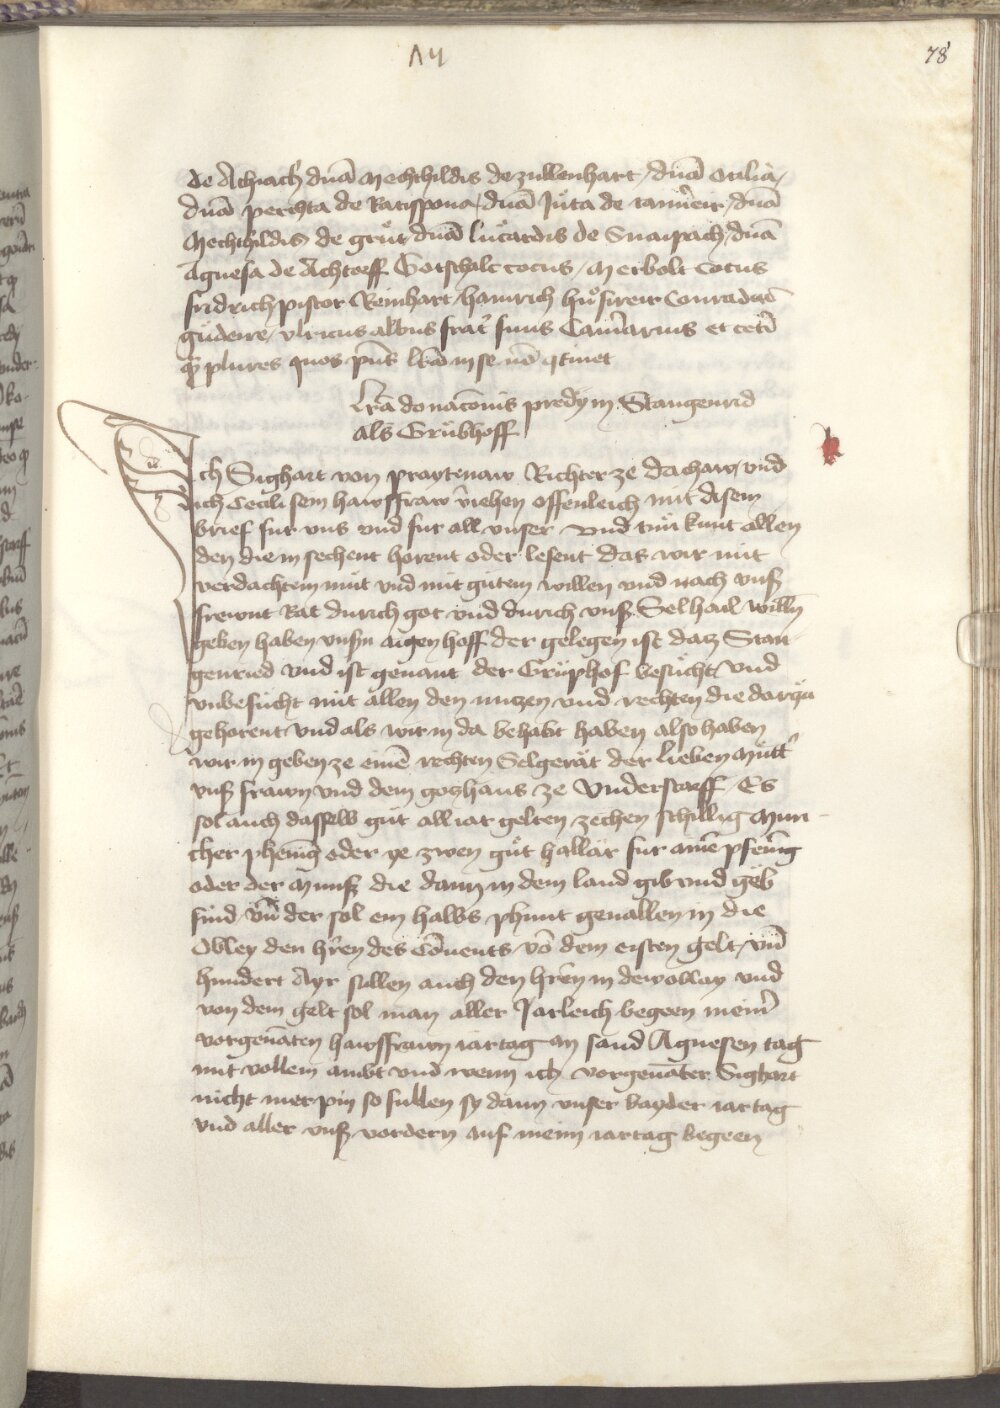 78
de Achiach dnā Mechthildis de zullenhart / dnā Otilia /
dnā perchta de Ratispona / dnā Juta de / dnā
Mechthildis de grůt dnā lucardis de Snaipach / dnā
Agnesa de Achtorff Gotschalc cocus / Merbolt Cocus
fridrich pistor Reinhart / hainrich Conradus
gudeire / vlricus albus frat' suus Cam̄arius et cet̄i
q̄ plures quos p̄ns lr̄a in se nō gtinet
Lr̄a donac̄onis predij in Stangenrid
als Grŭbhoff
Ich Sighart von praytenaw Richter ze dachaw / vnd
ich Cecili sein hawsfraw v̄iehen offenleich mit disem
brief fur vns vnd fur all vnser vnd tŭn kunt allen
den die in sechent horent oder lesent das wir mit
verdachtem mŭt vnd mit gŭtem willen vnd nach vnsß
frewnt Rat durich got vnd durich vnsß Selhail willn̄
geben haben vnsn̄ aigen hoff der gelegen ist datz Stan
genried vnd ist genant der Grŭphof besŭcht vnd
vnbesŭcht mit allen den nutzen vnd rechten die darzŭ
gehorent vnd als wir in da behabt haben also haben
wir in geben ze einē rechten Selgerät der lieben Mŭtt'
vnsß frawn vnd dem gozhaus ze Vnderstorff / Es
sol auch dasselb gŭt all iar gelten zechen schillig Mun
cher phenig oder ye zwen gŭt hallär fur ainē pfenīg
oder der Munsß die dann in dem land gib vnd geb
sind vn̄ der sol ein halbs phunt geuallen in die
Obley den hr̄en des Cōuents vō dem eisten gelt / vn̄
hundert Ayr sullen auch den hr̄en in dew obley vnd
von dem gelt sol man aller Jarleich begeen meiner
vorgenāten hawsfrawn iartag an sand Agnesen tag
mit vollem ambt vnd wenn ich vorgenāter Sighart
nicht mer pin so sullen sy dann vnser bayder iartag
vnd aller vnsß vordern auf meinn iartag begeen